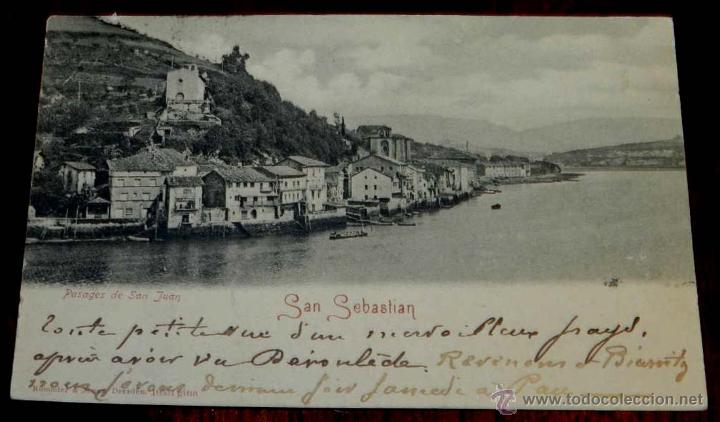 Pasages de San Juan
San Sebastian
Toute petite vue d'un merveilleux pays,
après avoir vu Déroulède. Revenons a Biarritz
nous serons demain soir samedi a Pau
Dresden
todocoleccion
www.todocoleccion.net